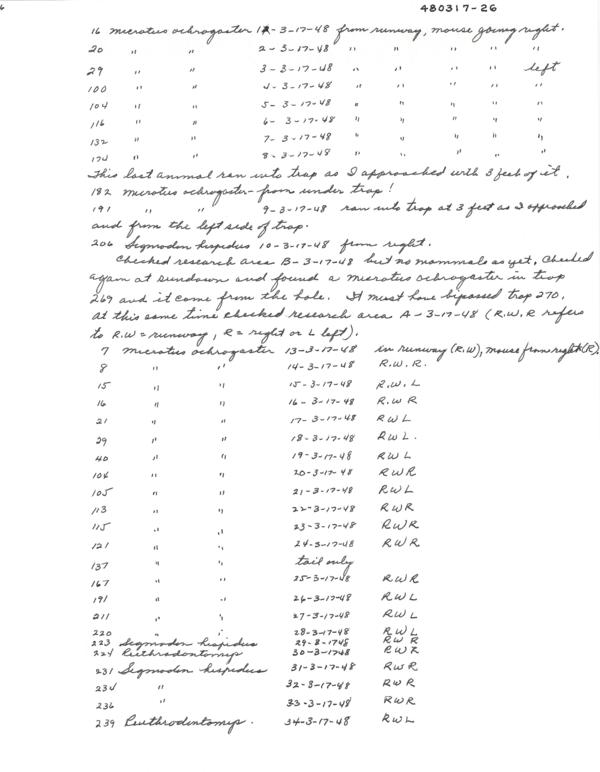 6
480317-26
16 microtus ochrogaster 1-3-17-48 from runway, mouse going right.
20 " " 2-3-17-48 " " " "
29 " " 3-3-17-48 " " " left
100 " " 4-3-17-48 " " " "
104 " " 5-3-17-48 " " " "
116 " " 6-3-17-48 " " " "
132 " " 7-3-17-48 " " " "
174 " " 8-3-17-48 " " " "
This last animal ran into trap as I approached with 3 feet of it.
182 microtus ochrogaster - from under trap!
191 " " 9-3-17-48 ran into trap at 3 feet as I approached
and from the left side of trap.
206 Sigmodon hispidus 10-3-17-48 from right.
Checked research area B-3-17-48 but no mammals as yet, checked
again at sundown and found a microtus ochrogaster in trap
269 and it come from the hole. It must have bipassed trap 270.
at this same time checked research area A-3-17-48 (R.W.R refers
to R.W = runway, R = right or L left).
7 microtus ochrogaster 13-3-17-48 in runway (R.W), mouse from right (R).
8 " " 14-3-17-48 R.W.R.
15 " " 15-3-17-48 R.W.L
16 " " 16-3-17-48 R.W R
21 " " 17-3-17-48 R W L
29 " " 18-3-17-48 R W L.
40 " " 19-3-17-48 R W L
104 " " 20-3-17-48 R W R
105 " " 21-3-17-48 R W L
113 " " 22-3-17-48 R W R
115 " " 23-3-17-48 R W R
121 " " 24-3-17-48 R W R
137 " " tail only
167 " " 25-3-17-48 R W R
191 " " 26-3-17-48 R W L
211 " " 27-3-17-48 R W L
220 " " 28-3-17-48 R W L
223 Segmodon hispidus 29-3-1748 R W R
224 Reithrodontomys 30-3-1748 R W R
231 Segmodon hispidus 31-3-17-48 R W R
234 " 32-3-17-48 R W R
236 " 33-3-17-48 R W R
239 Reithrodontomys. 34-3-17-48 R W L